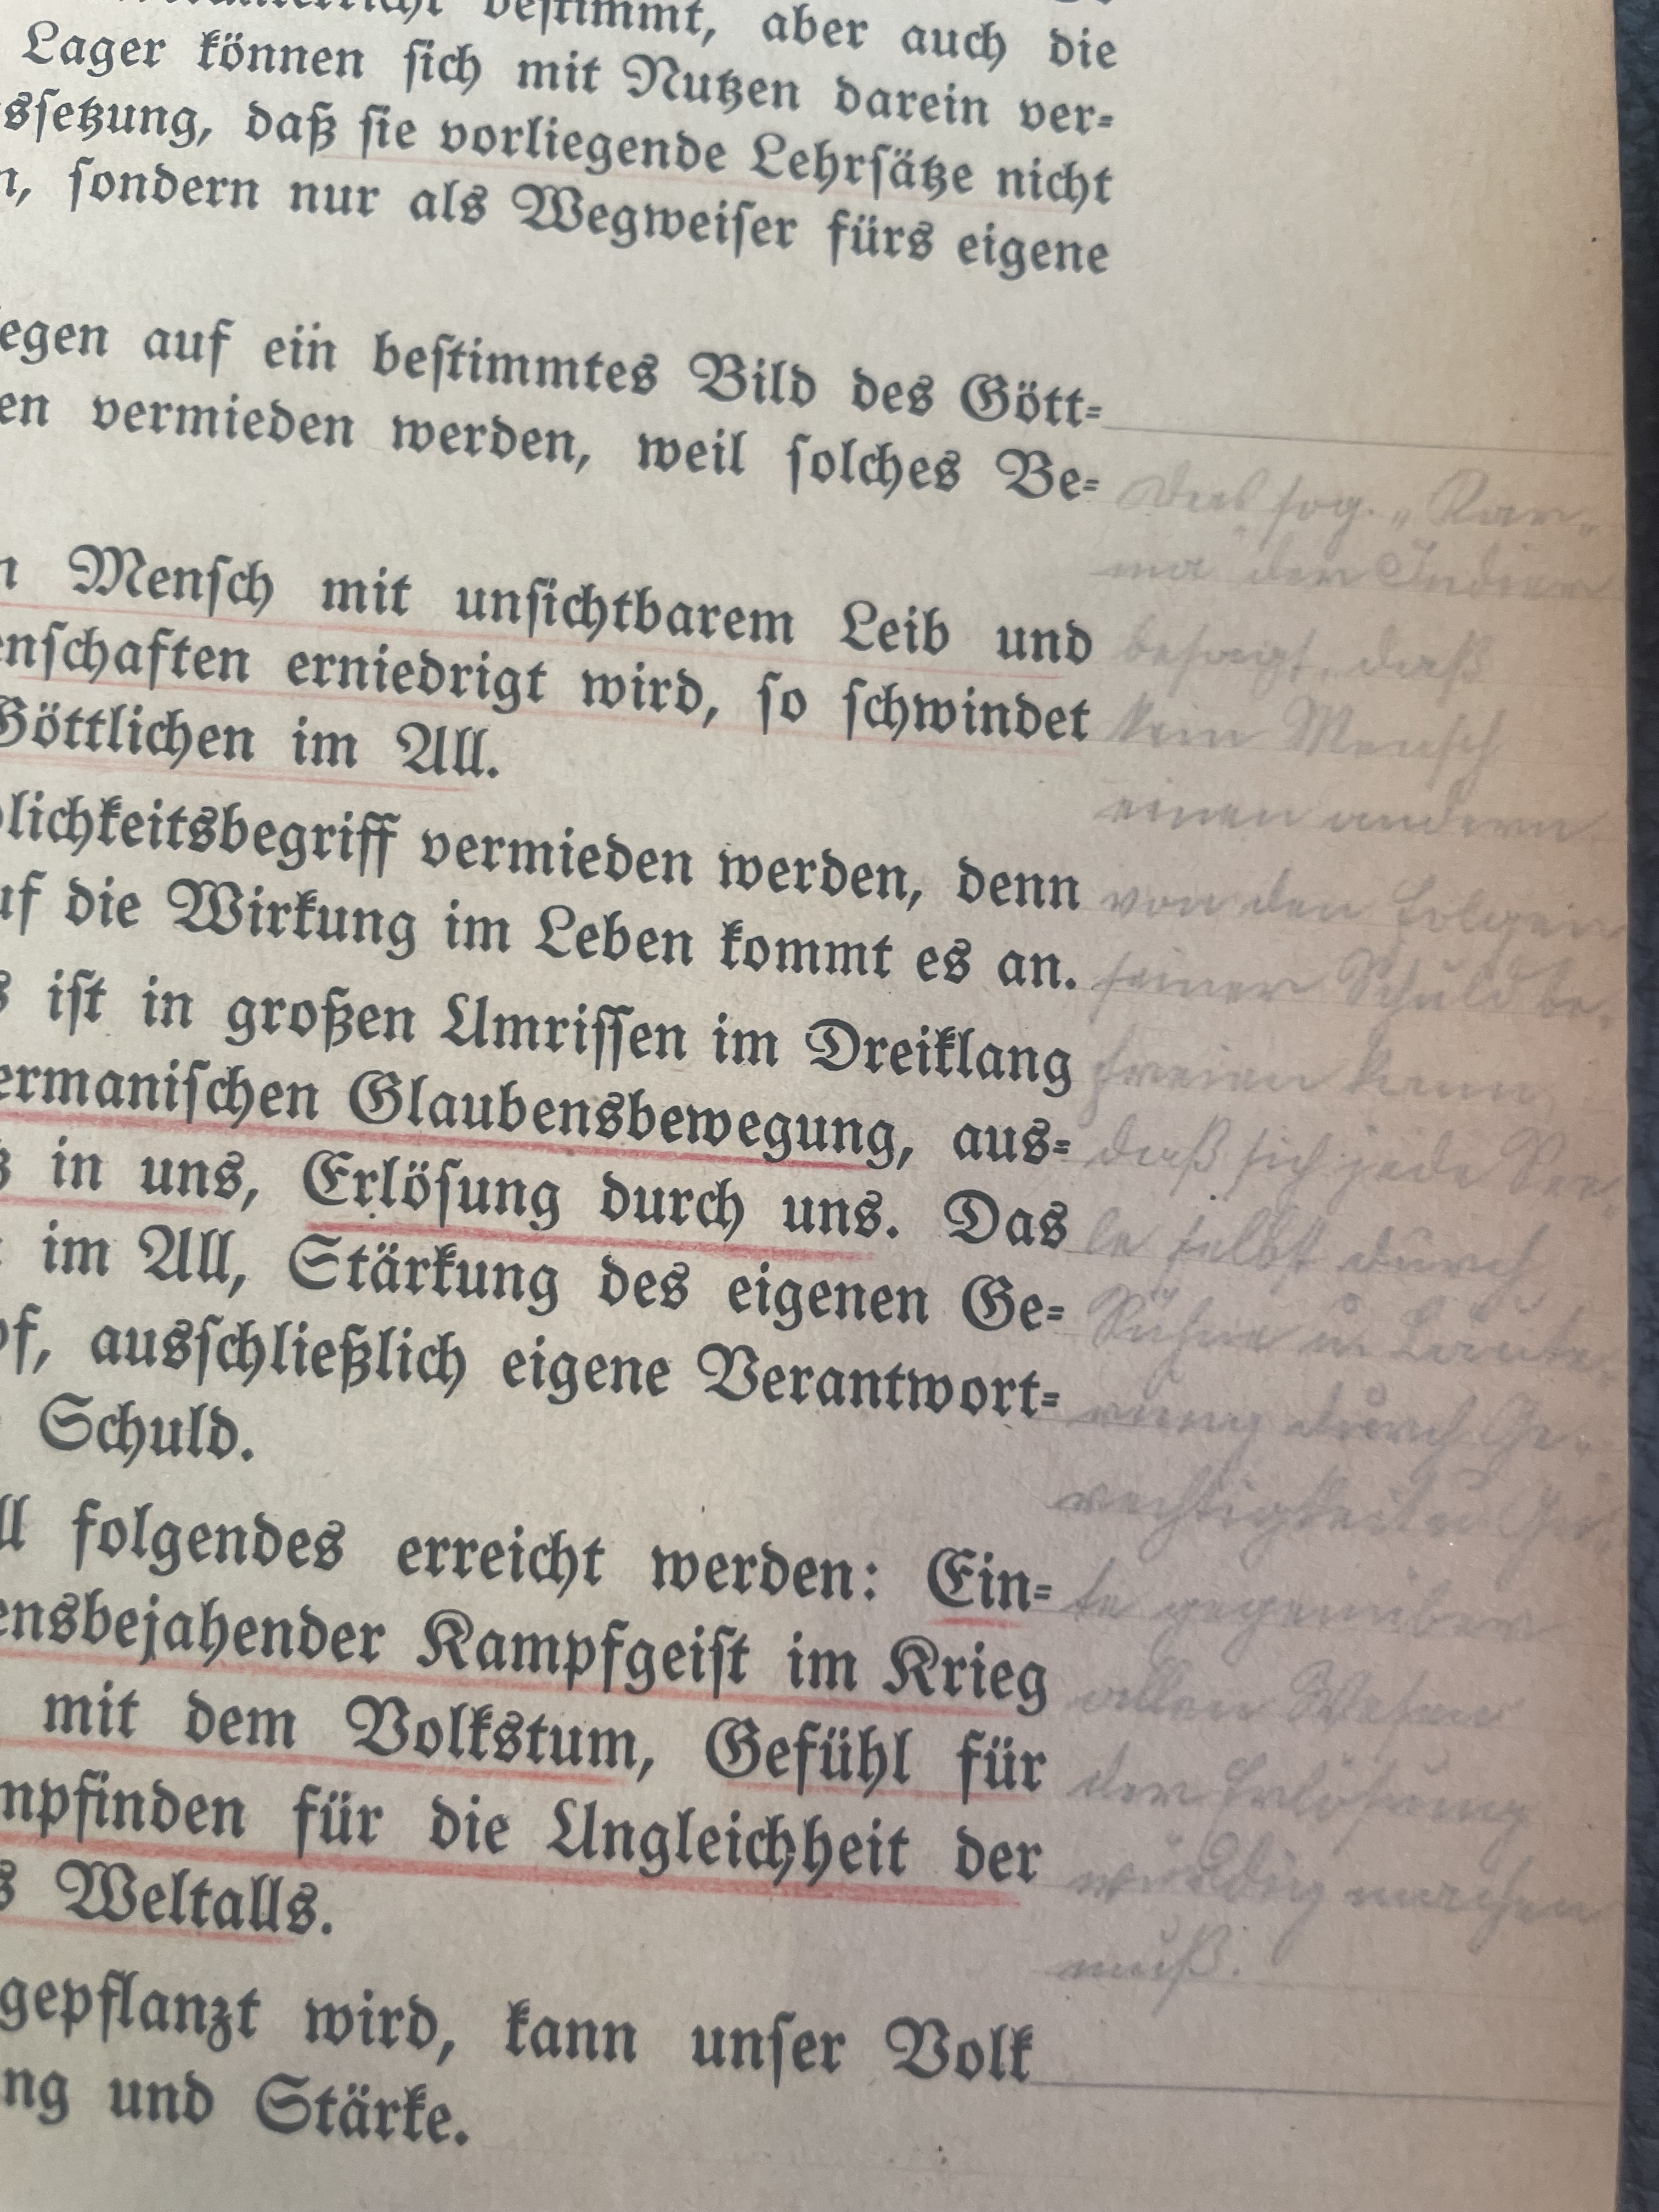 bestimmt, aber auch die
Lager können sich mit Nutzen darein ver-
ssetzung, daß sie vorliegende Lehrsätze nicht
n, sondern nur als Wegweiser fürs eigene
egen auf ein bestimmtes Bild des Gött-
en vermieden werden, weil solches Be-
n Mensch mit unsichtbarem Leib und
enschaften erniedrigt wird, so schwindet
Göttlichen im All.
lichkeitsbegriff vermieden werden, denn
uf die Wirkung im Leben kommt es an.
s ist in großen Umrissen im Dreiklang
ermanischen Glaubensbewegung, aus-
in uns, Erlösung durch uns. Das
im All, Stärkung des eigenen Ge-
pf, ausschließlich eigene Verantwort-
Schuld.
ll folgendes erreicht werden: Ein-
ensbejahender Kampfgeist im Krieg
mit dem Volkstum, Gefühl für
mpfinden für die Ungleichheit der
s Weltalls.
gepflanzt wird, kann unser Volk
ng und Stärke.
Das sog. „Kar-
ma" der Indier
besagt, daß
kein Mensch
einen andern
von den Folgen
seiner Schuld be-
freien kann,
daß sich jede See-
le selbst durch
Sühne u. Läute-
rung durch Ge-
rechtigkeit u. Gü-
te gegenüber
allen Wesen
der Erlösung
würdig machen
muß.